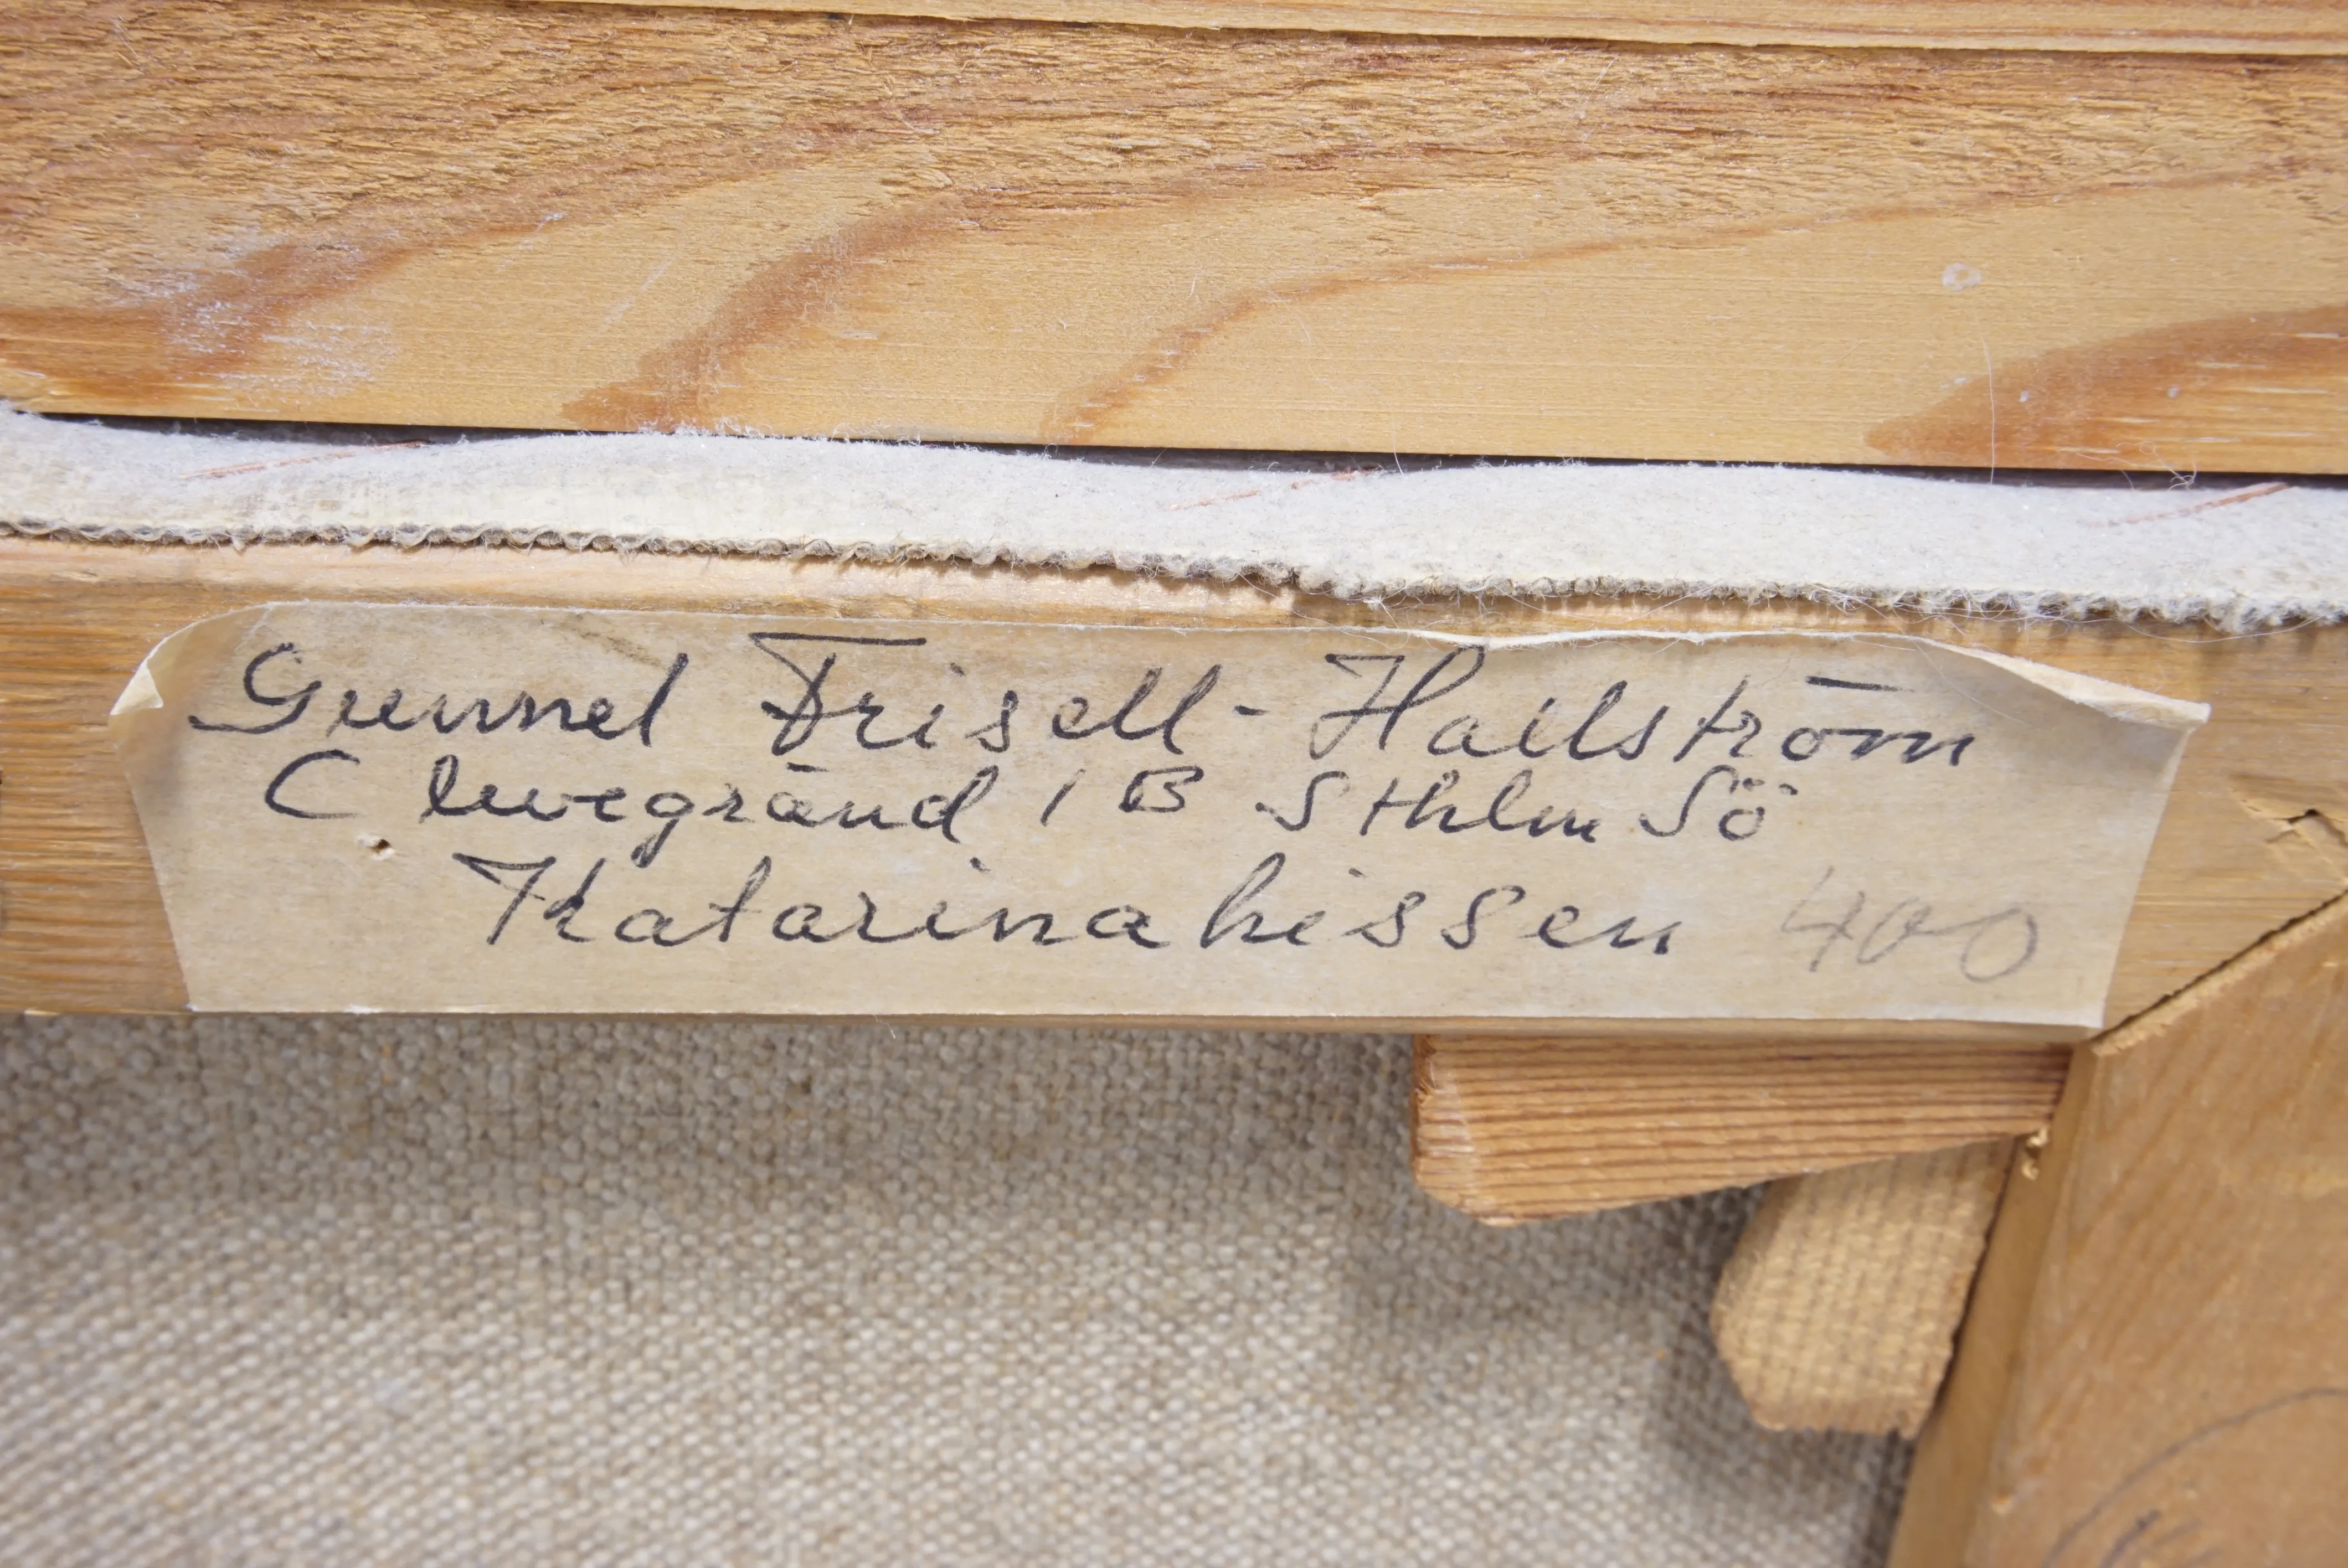 Gunnel Frisell-Hallström
Clevegränd 1 B Sthlm Sö
Katarinahissen 400